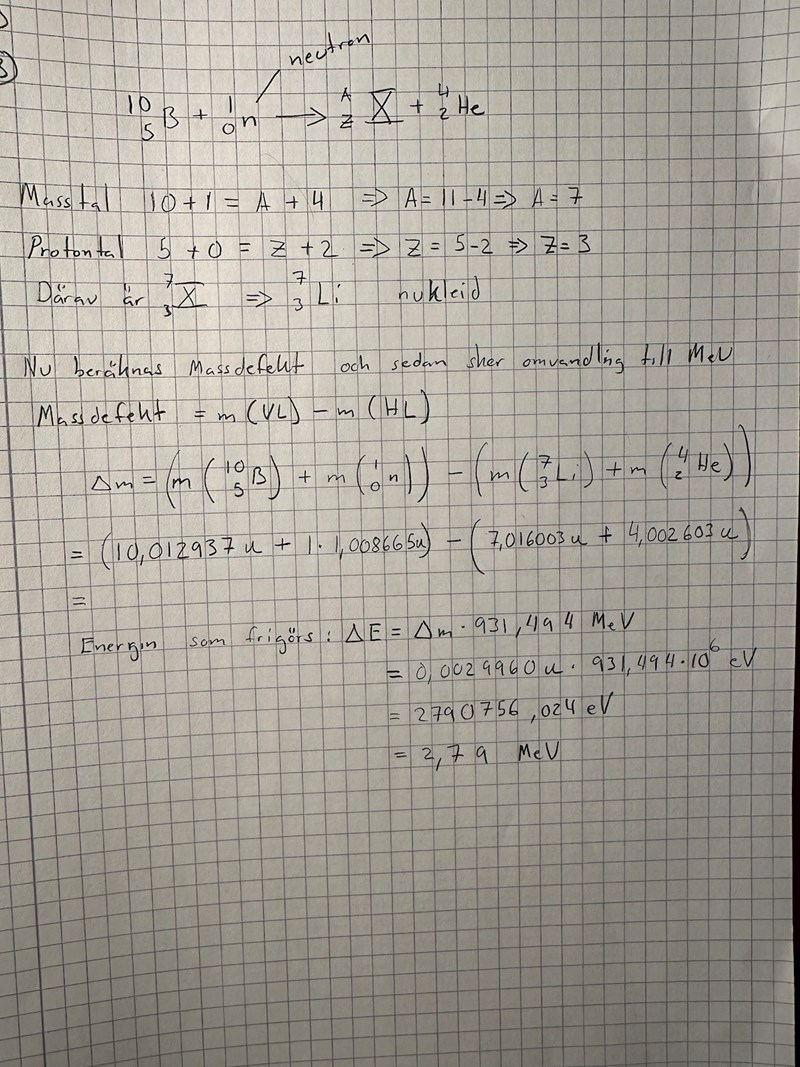 neutron
¹⁰₅B + ¹₀n → ᴬ_Z X + ⁴₂He
Masstal 10+1 = A + 4 => A = 11-4 => A = 7
Protontal 5 + 0 = Z + 2 => Z = 5-2 => Z = 3
Därav är ⁷₃X => ⁷₃Li nukleid
Nu beräknas Massdefekt och sedan sker omvandlig till MeV
Massdefekt = m (VL) - m (HL)
Δm = (m (¹⁰₅B) + m (¹₀n)) - (m (⁷₃Li) + m (⁴₂He))
= (10,012937u + 1·1,008665u) - (7,016003u + 4,002603u)
=
Energin som frigörs: ΔE = Δm·931,494 MeV
= 0,0029960u · 931,494·10⁶ eV
= 2790756,024 eV
= 2,79 MeV